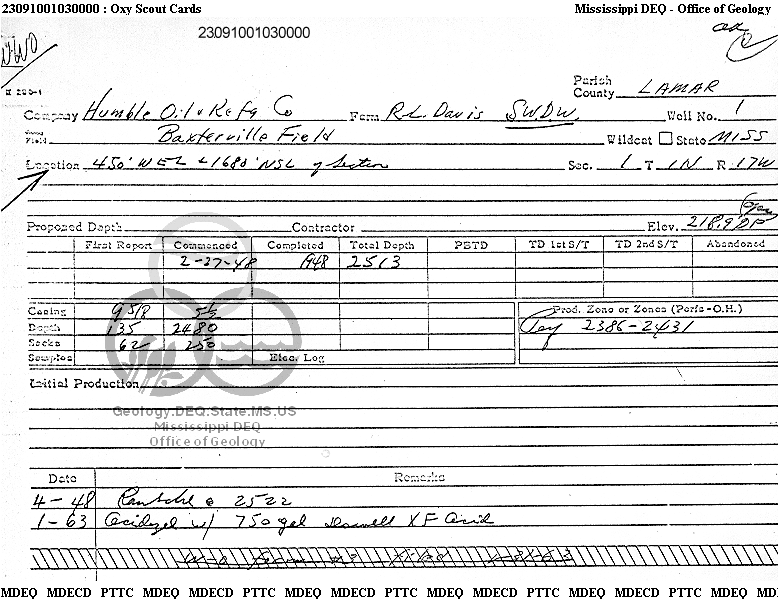 23091001030000 : Oxy Scout Cards Mississippi DEQ - Office of Geology
23091001030000
Parish
County LAMAR
Company Humble Oil & Refg Co Farm R.L. Davis S.W.D.W. Well No. 1
Field Baxterville Field Wildcat State MISS
Location 450' WEL & 1680' NSL of Section Sec. 1 T. 1N R. 17W
Proposed Depth Contractor Elev. 218.9 DF
First Report Commenced Completed Total Depth PBTD TD 1st S/T TD 2nd S/T Abandoned
2-27-48 1948 2513
Casing 9 5/8 5½ Prod. Zone or Zones (Perfs-O.H.)
Depth 135 2480 2386-2431
Sacks 62 250
Samples Elec. Log
Initial Production
Geology.DEQ.State.MS.US
Mississippi DEQ
Office of Geology
Date Remarks
4-48 @ 2522
1-63 Acidized w/ 750 gal Dowell XF Acid
MDEQ MDECD PTTC MDEQ MDECD PTTC MDEQ MDECD PTTC MDEQ MDECD PTTC MDEQ MDECD PTTC MDEQ MD